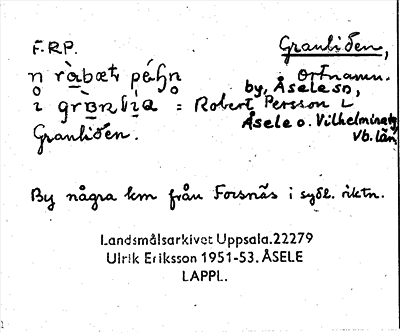 F.RP.
Granliden,
ortnamn.
by, Åsele sn,
Åsele o. Vilhelmina tg,
Vb. län
= Robert Persson i
Granliden.
By några km från Forsnäs i sydl. riktn.
Landsmålsarkivet Uppsala.22279
Ulrik Eriksson 1951-53. ÅSELE
LAPPL.